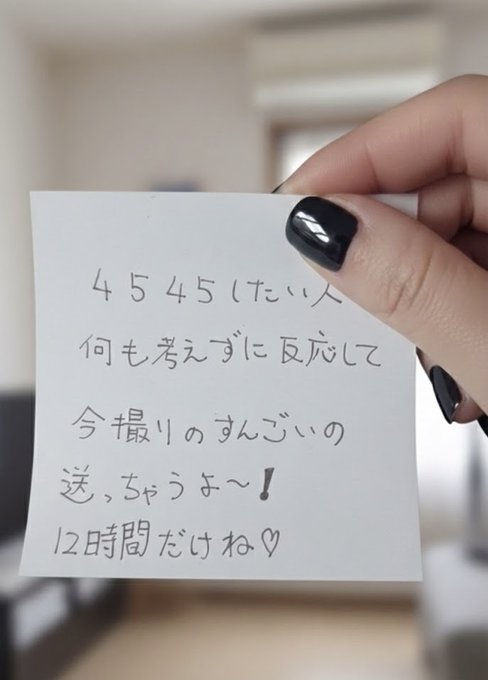 4545したい人
何も考えずに反応して
今撮りのすんごいの
送っちゃうよ〜!
12時間だけね♡